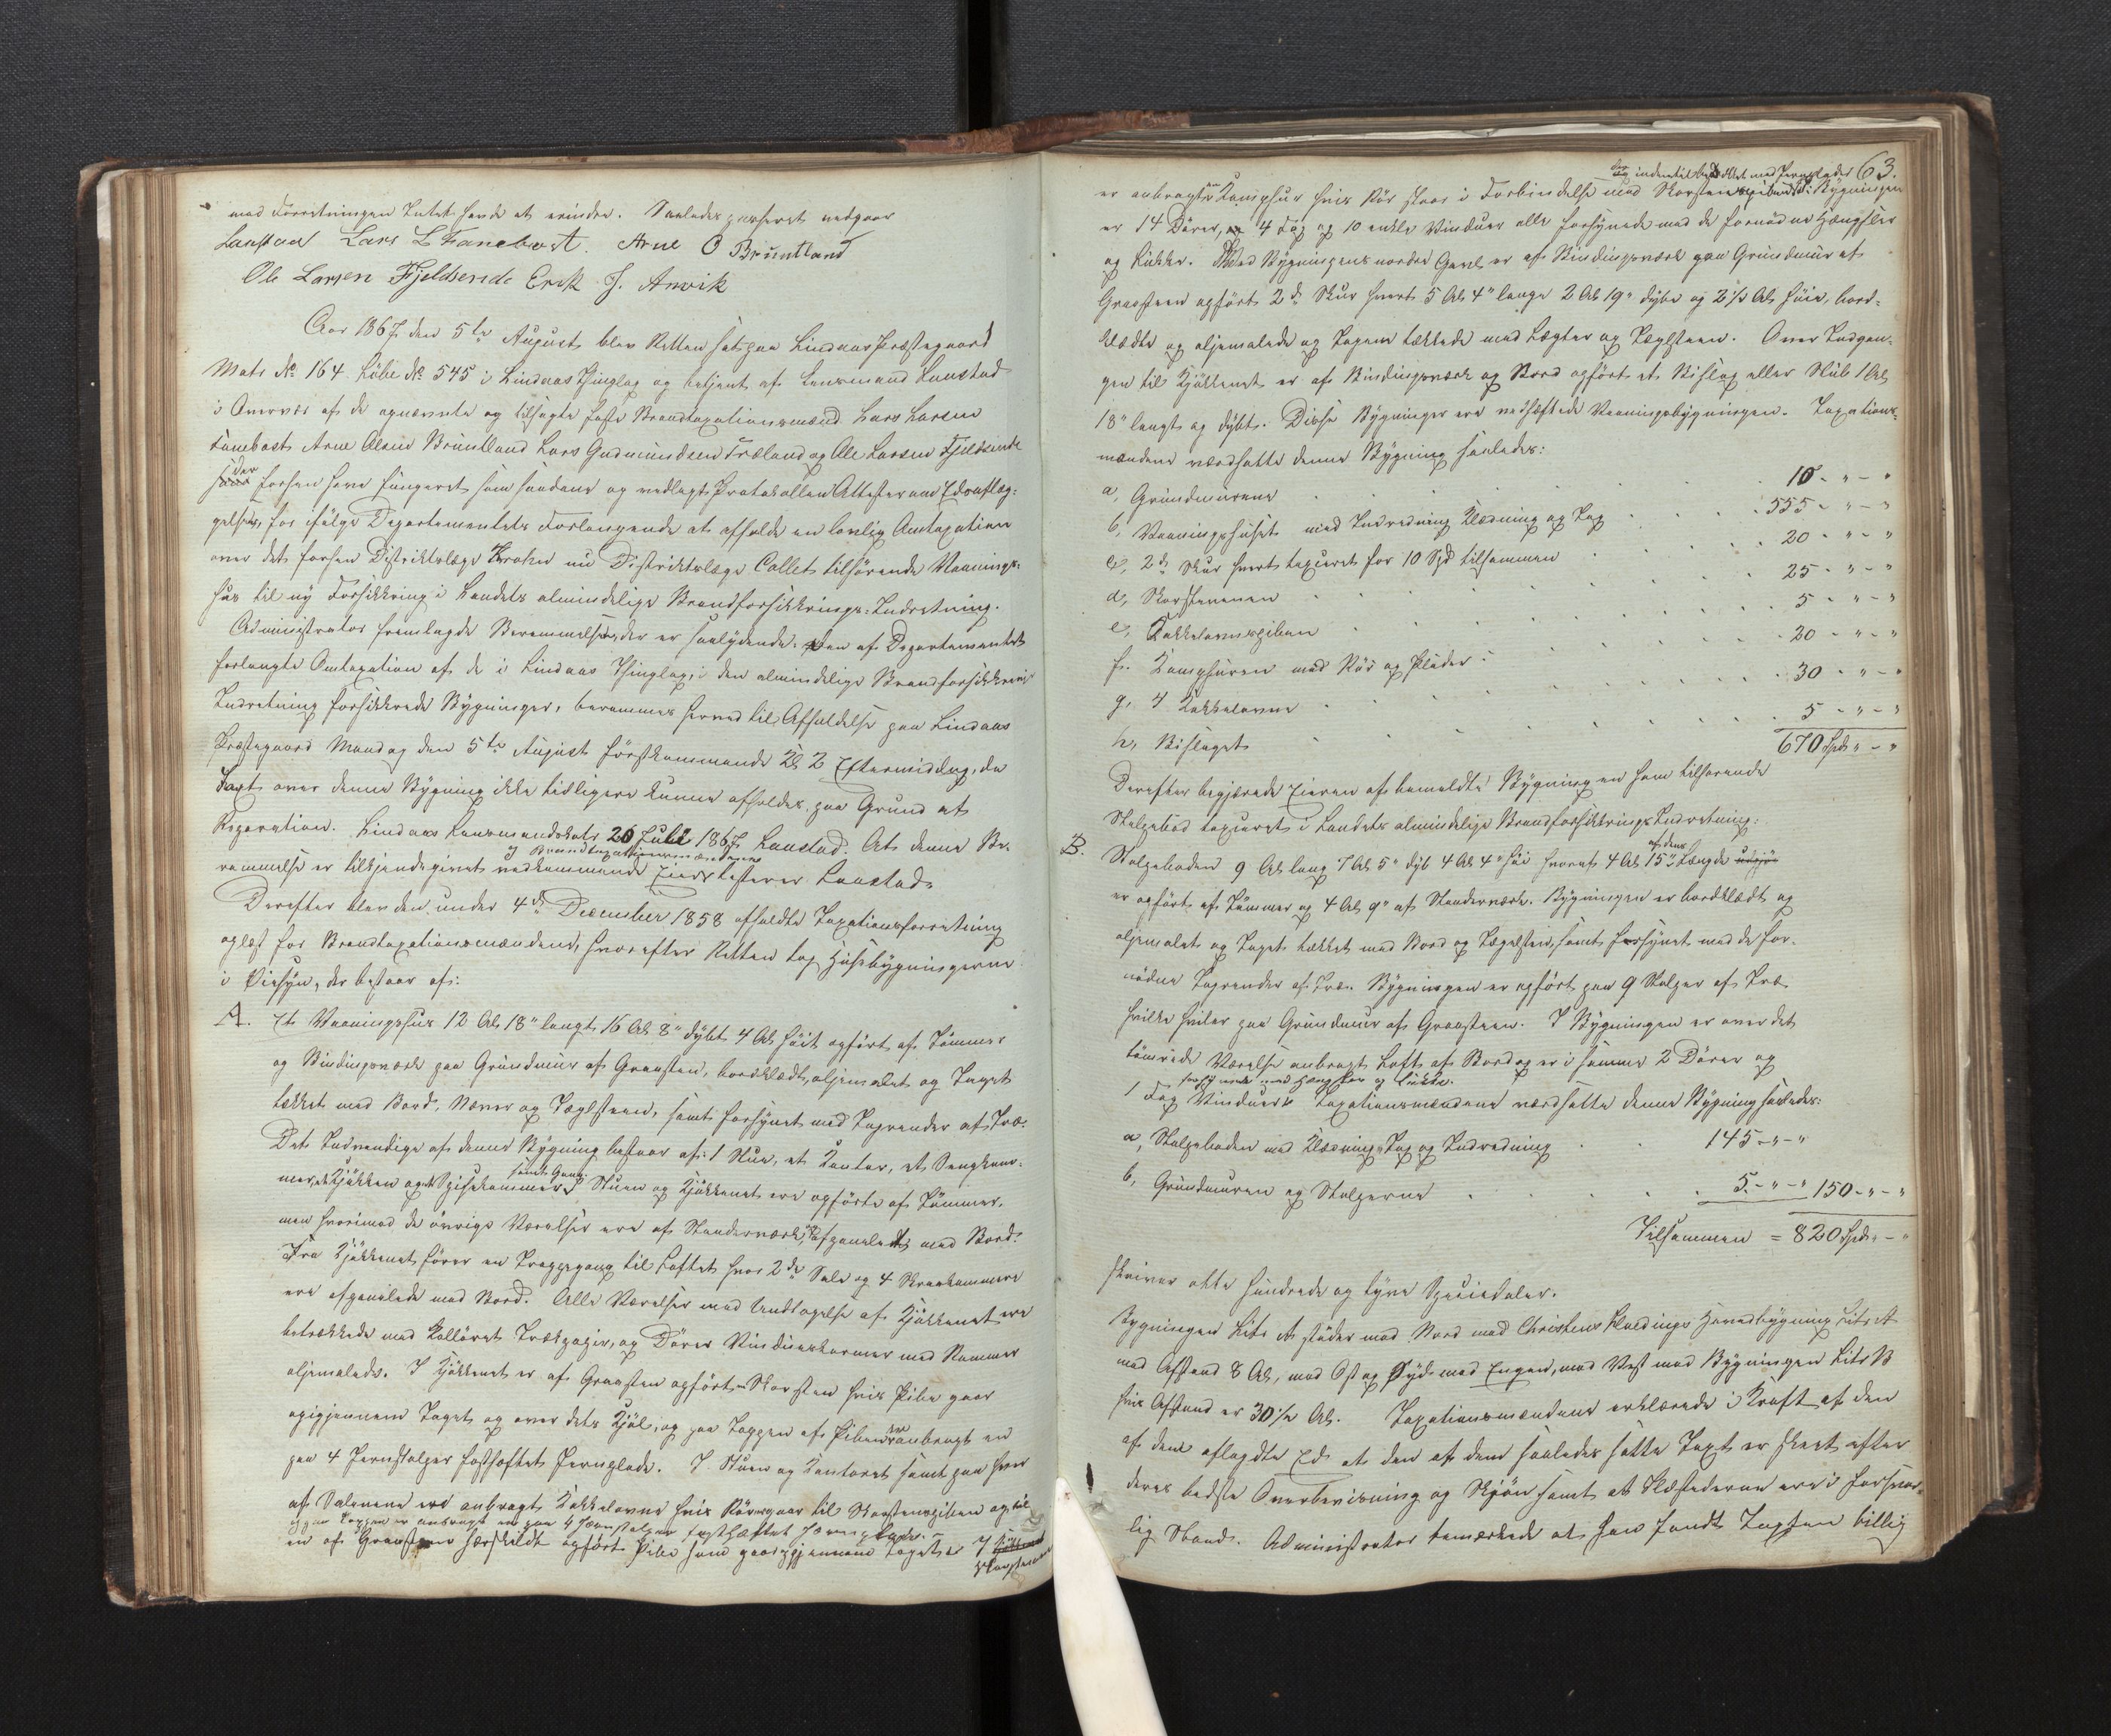 med Forretningen Intet havde at erindre. Saaledes passeret vedgaaer
Laustad Lars L Fanebost. Arne O Bruntland
Ole Larsen Fjeldsende Erik J. Anvik
Aar 1867 den 5te August blev Retten sat paa Lindaas Præstegaard
Matr No 164 Løbe No 545 i Lindaas Thinglag og betjent af Lensmand Laustad
i Overvær af de opnævnte og tilsagte faste Brandtaxationsmænd Lars Larsen
Fanebost Arne Olsen Bruntland Lars Gudmundsen Fræland og Ole Larsen Fjeldsende
der forhen have fungeret som saadane og vedlagt Protokollen Attester om Edsaflæg-
gelse, for ifølge Departementets Forlangende at afholde en lovlig Omtaxation
over det forhen Distriktslæge Krohn nu Distriktslæge Collet tilhørende Vaanings-
hus til ny Forsikkring i Landets almindelige Brandforsikkrings-Indretning.
Administrator fremlagde Berammelsen, der er saalydende: Den af Departementet
forlangte Omtaxation af de i Lindaas Thinglag, i den almindelige Brandforsikkrings
Indretning forsikkrede Bygninger, berammes herved til Afholdelse paa Lindaas
Præstegaard Mandag den 5te August førstkommende Kl 2 Eftermiddag, da
Taxt over denne Bygning ikke tidligere kunne afholdes paa Grund af
Reparation. Lindaas Lensmandskab 26 Juli 1867 Laustad. At denne Be-
og Brandtaxationsmændene
rammelse er tilkjendegivet vedkommende Eier testerer Laustad
Derefter blev den under 4de December 1858 afholdte Taxationsforretning
oplæst for Brandtaxationsmændene, hvorefter Retten tog Huusbygningerne
i Øiesyn, der bestaar af:
A. Et Vaaningshus 12 Al 18" langt 16 Al 8" dybt 4 Al høit opført af Tømmer
og Bindingsværk paa Grundmur af Graasten, bordklædt, oljemalet og Taget
tækket med Bord, Næver og Tæglsteen, samt forsynet med Tagrender af Træ.
Det Indvendige af denne Bygning bestaar af: 1 Stue, et Kontor, et Sengkam-
samt Gang
mer, et Kjøkken og et Spisekammer. Stuen og Kjøkkenet ere opførte af Tømmer,
men hvorimod de øvrige Værelser ere af Stenderværk, afpanelet med Bord.
Fra Kjøkkenet fører en Trappegang til Loftet hvor 2de Sale og 4 Skraakammere
ere afpanelede med Bord. Alle Værelser med Undtagelse af Kjøkkenet ere
betrækkede med Kulløret Trækpapir, og Dører Vindueskarmer med Rammer
oljemalede. I Kjøkkenet er af Graasten opført en Skorsten hvis Pibe gaar
op igjennem Taget og over dets Kjøl, og paa Toppen af Piben er anbragt en
paa 4 Jernstolper fasthæftet Jernplade. I Stuen og Kontoret samt paa hver
af Salene ere anbragt Kakkelovne hvis Rør gaar til Skorstenspiben og til
og paa Toppen er anbragt en paa 4 Jernstolper fasthæftet Jernplade.
en af Graasten særskildt opført Pibe som gaar igjennem Taget
63.
og indentil beklædt med Jernplader
er anbragt en Komfur hvis Rør staar i Forbindelse med Skorstenspiben. I Bygningen
er 14 Dører, 4 Fag og 10 enkle Vinduer alle forsynede med de fornødne Hængsler
og Lukker. Ved Bygningens nordre Gavl er af Bindingsværk paa Grundmur af
Graasteen opført 2de Skur hvert 5 Al 4" lange 2 Al 19" dybe og 2 1/2 Al høie, bord-
klædte og oljemalede og Tagene tækkede med Lægter og Tæglsteen. Over Indgan-
gen til Kjøkkenet er af Bindingsværk og Bord opført et Bislag eller Skub 1 Al
18" langt og dybt. Disse Bygninger ere vedhæftede Vaaningsbygningen. Taxations-
mændene værdsatte denne Bygning saaledes:
a, Grundmurene 10 - " - "
b, Vaaningshuset med Indredning Klædning og Tag 555 - " - "
c, 2de Skur hvert taxeret for 10 Spd tilsammen 20 - " - "
d, Skorstenen 25 - " - "
e, Kakkelovnspiben 5 - " - "
f. Komfuren med Rør og Plader 20 - " - "
g, 4 Kakkelovne 30 - " - "
h, Bislaget 5 - " - "
670 Spd " - "
Derefter begjærede Eieren af bemeldte Bygning en ham tilhørende
Stolpebod taxeret i Landets almindelige Brandforsikkrings Indretning:
af dens
B. Stolpeboden 9 Al lang 7 Al 5" dyb 4 Al 4" høi hvoraf 4 Al 15" Længde
er opført af Tømmer og 4 Al 9" af Stenderværk. Bygningen er bordklædt og
oljemalet og Taget tækket med Bord og Tæglsteen, samt forsynet med de for-
nødne Tagrender af Træ. Bygningen er opført paa 9 Stolper af Træ
hvilke hviler paa Grundmur af Graasteen. I Bygningen er over det
tømrede Værelse anbragt Loft af Bord og er i samme 2 Dører og
forsynede med Hængsler og Lukke.
1 Fag Vinduer. Taxationsmændene værdsatte denne Bygning saaledes:
a, Stolpeboden med Klædning Tag og Indredning 145 - " - "
b, Grundmuren og Stolperne 5 - " - " 150 - " - "
Tilsammen = 820 Spd " - "
skriver otte hundrede og tyve Speciedaler.
Bygningen Litr A støder mod Nord mod Christens Huldings Hovedbygning Litr A
med Afstand 8 Al, mod Øst og Syd med Engen, mod Vest mod Bygningen Litr B
hvis Afstand er 30 1/2 Al. Taxationsmændene erklærede i Kraft af den
af dem aflagdte Ed at den af dem saaledes satte Taxt er skeet efter
deres bedste Overbevisning og Skjøn samt at Ildstederne ere i forsvar-
lig Stand. Administrator bemærkede at han fandt Taxten billig